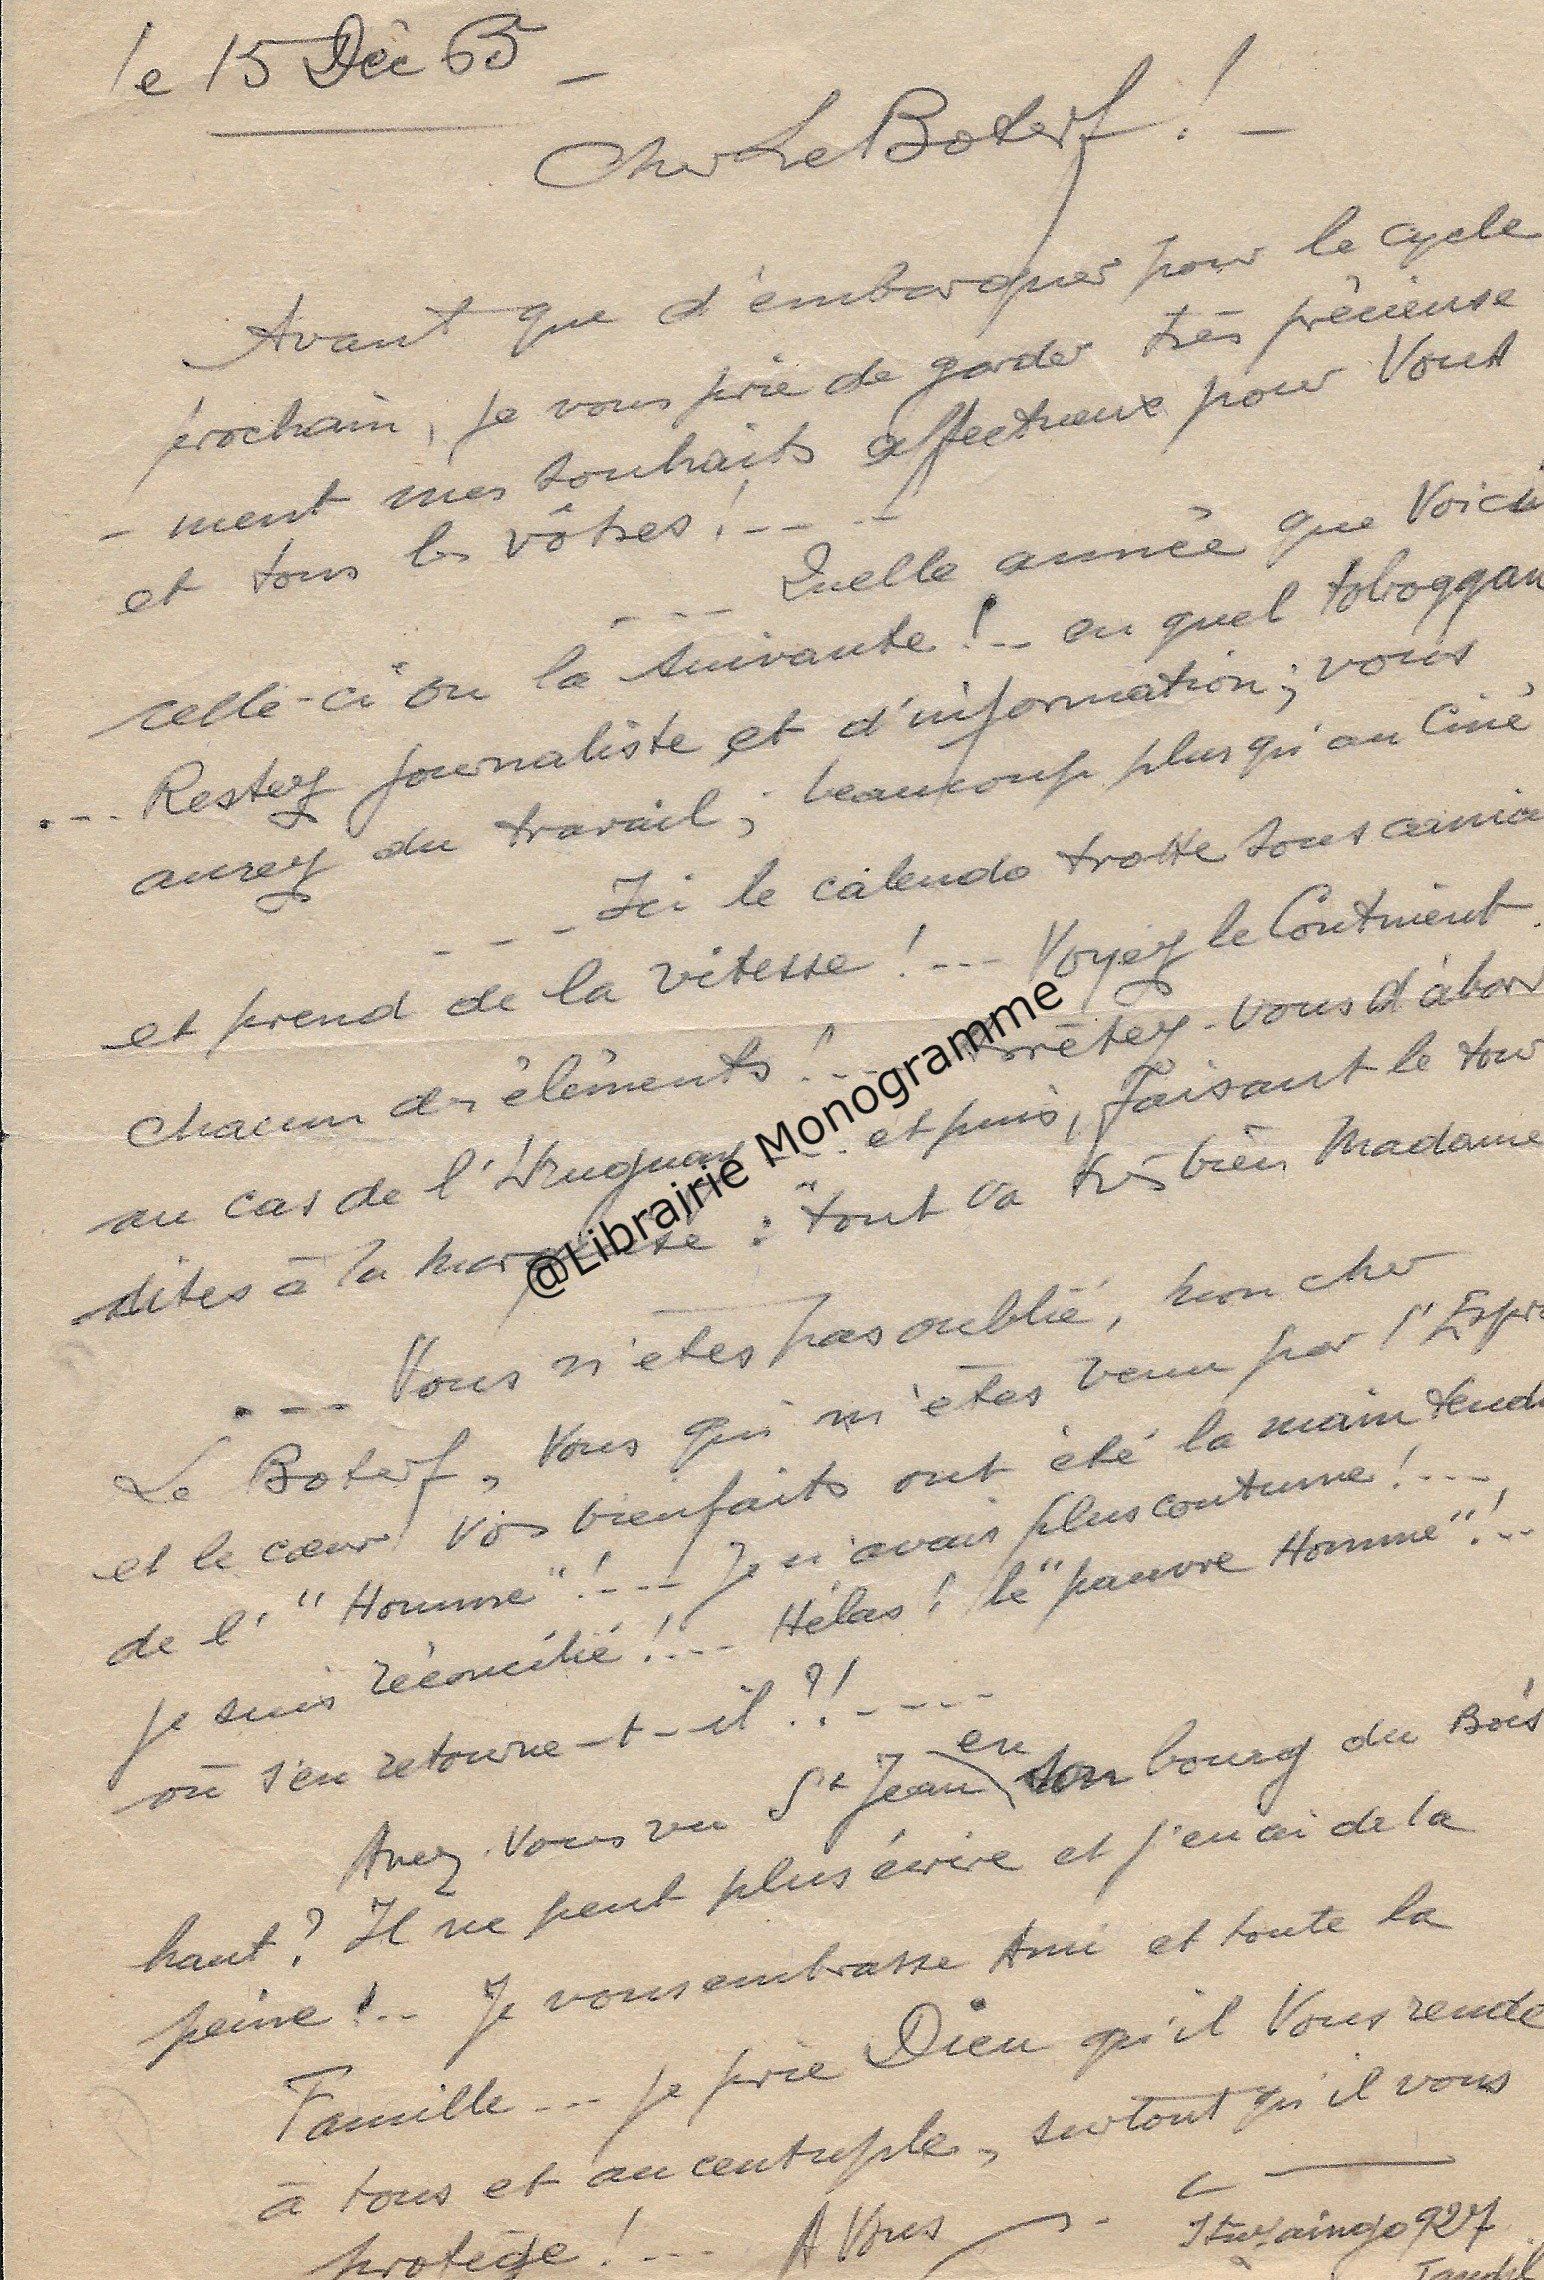 le 15 Déc 65 -
Cher Le Boterf ! -
Avant que d'embarquer pour le cycle
prochain, je vous prie de garder très précieuse
- ment mes souhaits affectueux pour Vous
et tous les vôtres ! - - -
- - - Quelle année que Voici
celle-ci ou la suivante ! - en quel toboggan
. - - Restez journaliste et d'information ; vous
aurez du travail ; beaucoup plus qu'au Ciné
- - - Ici le calendo trotte sous
et prend de la vitesse ! - - - Voyez le Continent.
chacun des éléments ! - - Arrêtez-vous d'abor
au cas de l'Uruguay - - - et puis, faisant le tour
dites à la marquise : "tout va très bien Madame
. - - - Vous n'êtes pas oublié, mon cher
Le Boterf, Vous qui m'êtes venu par l'Espri
et le cœur Vos bienfaits ont été la main tendu
de l'"Homme" ! - - - Je n'avais plus coutume ! - - -
je suis réconcilié ! - - - Hélas ! le "pauvre Homme" ! - -
où s'en retourne-t-il ?! - - - -
en
Avez-Vous vu St Jean son bourg du Bois
haut ? Il ne peut plus écrire et j'en ai de la
peine ! - - Je vous embrasse Ami et toute la
Famille - - - je prie Dieu qu'il Vous rende
à tous et au centuple, surtout qu'il vous
protège ! - - - A Vous
Ituzaingo 927
Tandil
@Librairie Monogramme